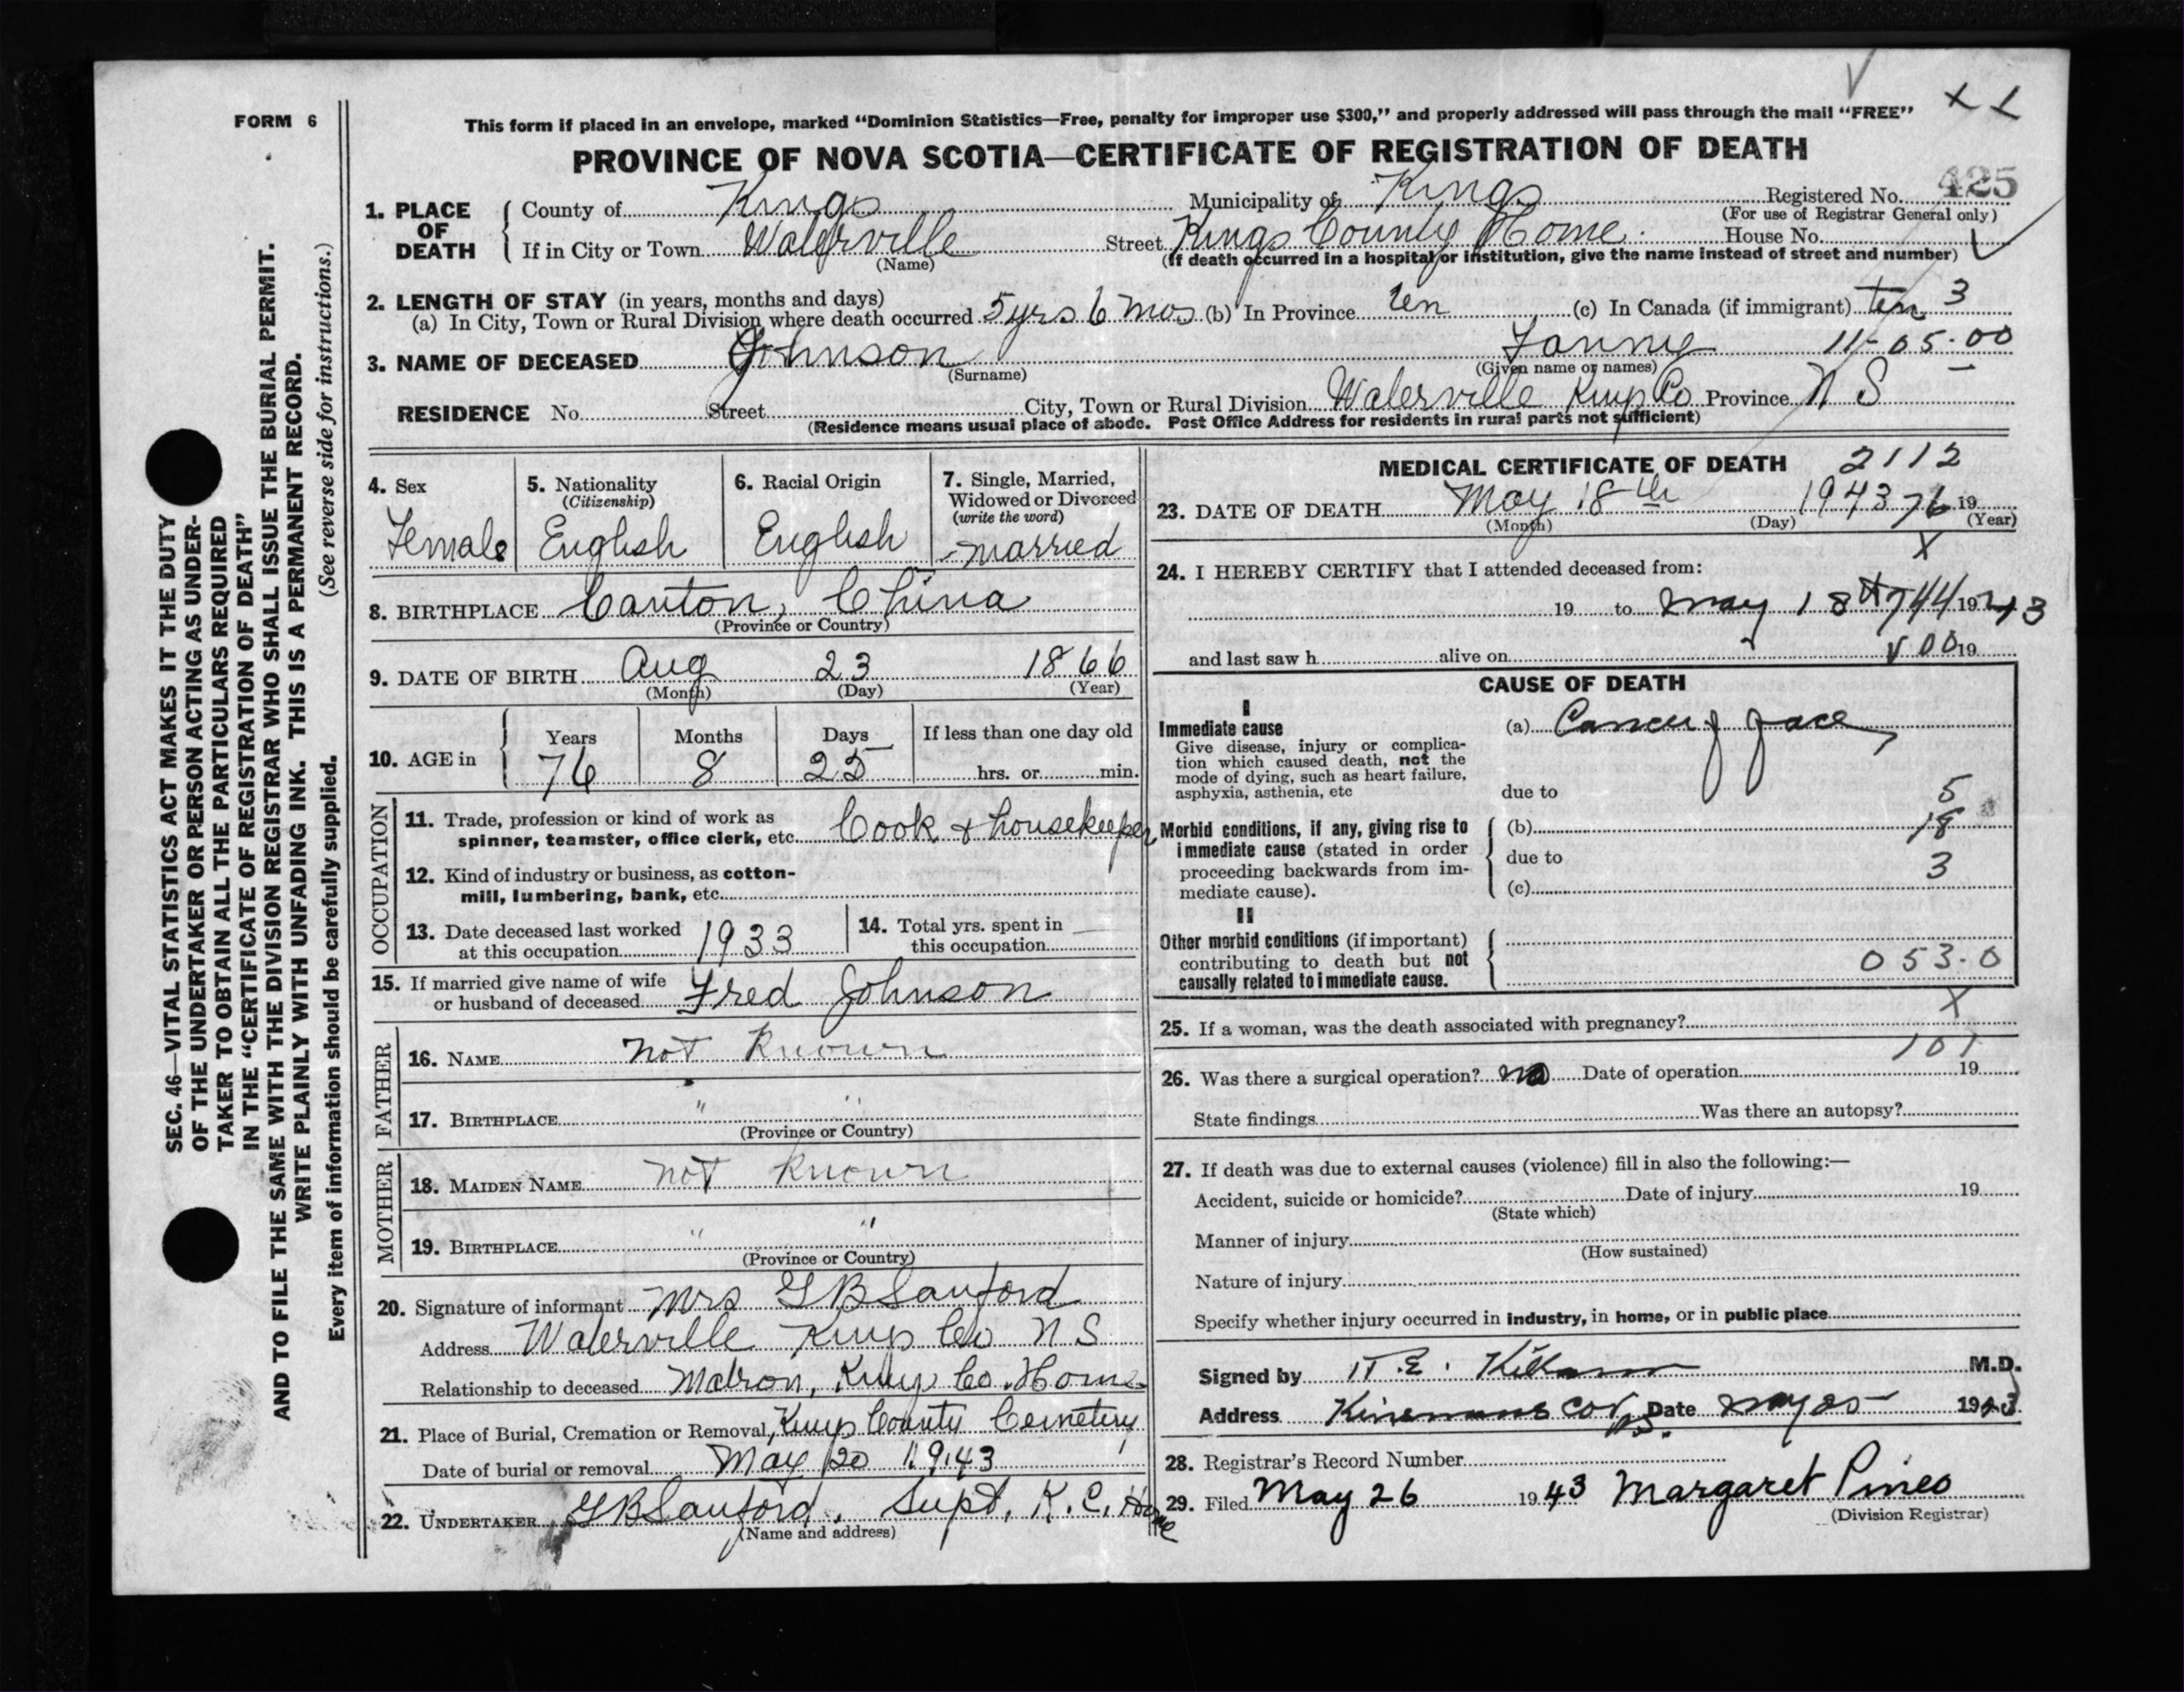 FORM 6
This form if placed in an envelope, marked “Dominion Statistics—Free, penalty for improper use $300,” and properly addressed will pass through the mail “FREE”
PROVINCE OF NOVA SCOTIA—CERTIFICATE OF REGISTRATION OF DEATH
425
1. PLACE OF DEATH
County of Kings Municipality of Kings Registered No.
(For use of Registrar General only)
If in City or Town Waterville Street Kings County Home. House No.
(Name) (If death occurred in a hospital or institution, give the name instead of street and number)
2. LENGTH OF STAY (in years, months and days)
(a) In City, Town or Rural Division where death occurred 5 yrs 6 mos (b) In Province ten (c) In Canada (if immigrant) ten 3
3. NAME OF DECEASED Johnson Fanny 11-05-00
(Surname) (Given name or names)
RESIDENCE No. Street City, Town or Rural Division Waterville Kings Co Province N S
(Residence means usual place of abode. Post Office Address for residents in rural parts not sufficient)
SEC. 46—VITAL STATISTICS ACT MAKES IT THE DUTY
OF THE UNDERTAKER OR PERSON ACTING AS UNDER-
TAKER TO OBTAIN ALL THE PARTICULARS REQUIRED
IN THE “CERTIFICATE OF REGISTRATION OF DEATH”
AND TO FILE THE SAME WITH THE DIVISION REGISTRAR WHO SHALL ISSUE THE BURIAL PERMIT.
WRITE PLAINLY WITH UNFADING INK. THIS IS A PERMANENT RECORD.
Every item of information should be carefully supplied. (See reverse side for instructions.)
4. Sex
Female
5. Nationality
(Citizenship)
English
6. Racial Origin
English
7. Single, Married,
Widowed or Divorced
(write the word)
married
8. BIRTHPLACE Canton, China
(Province or Country)
9. DATE OF BIRTH Aug 23 1866
(Month) (Day) (Year)
10. AGE in
Years Months Days If less than one day old
76 8 25 hrs. or min.
OCCUPATION
11. Trade, profession or kind of work as
spinner, teamster, office clerk, etc. Cook & housekeeper
12. Kind of industry or business, as cotton-
mill, lumbering, bank, etc.
13. Date deceased last worked
at this occupation 1933
14. Total yrs. spent in
this occupation
15. If married give name of wife
or husband of deceased Fred Johnson
FATHER
16. NAME not known
17. BIRTHPLACE " "
(Province or Country)
MOTHER
18. MAIDEN NAME not known
19. BIRTHPLACE " "
(Province or Country)
20. Signature of informant Mrs G B Sanford
Address Waterville Kings Co N S
Relationship to deceased Matron, Kings Co. Home
21. Place of Burial, Cremation or Removal Kings County Cemetery
Date of burial or removal May 20 1943
22. UNDERTAKER G B Sanford. Supt. K. C. Home
(Name and address)
MEDICAL CERTIFICATE OF DEATH 2112
23. DATE OF DEATH May 18th 1943 76 19
(Month) (Day) (Year)
X
24. I HEREBY CERTIFY that I attended deceased from:
19 to May 18th 744 19 43
and last saw h alive on 19
CAUSE OF DEATH
I
Immediate cause
Give disease, injury or complica-
tion which caused death, not the
mode of dying, such as heart failure,
asphyxia, asthenia, etc
(a) Cancer of face
due to 5
Morbid conditions, if any, giving rise to
immediate cause (stated in order
proceeding backwards from im-
mediate cause).
(b) 18
due to
3
(c)
II
Other morbid conditions (if important)
contributing to death but not
causally related to immediate cause.
053.0
X
25. If a woman, was the death associated with pregnancy?
101
26. Was there a surgical operation? no Date of operation 19
State findings Was there an autopsy?
27. If death was due to external causes (violence) fill in also the following:—
Accident, suicide or homicide? Date of injury 19
(State which)
Manner of injury
(How sustained)
Nature of injury
Specify whether injury occurred in industry, in home, or in public place
Signed by M.D.
Address Date May 25 1943
28. Registrar's Record Number
29. Filed May 26 1943 Margaret Pineo
(Division Registrar)